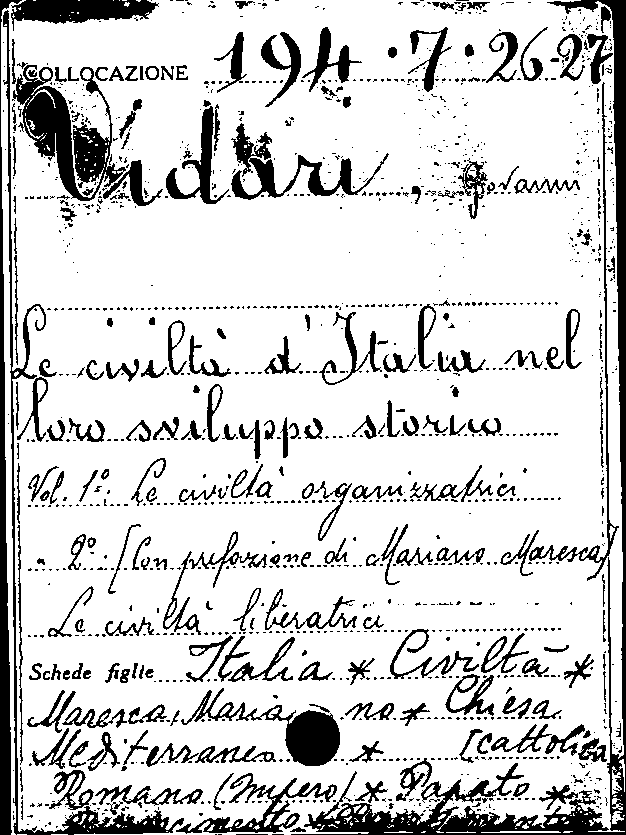 COLLOCAZIONE 194·7·26-27
Vidari, Giovanni
Le civiltà d'Italia nel
loro sviluppo storico
Vol. 1º: Le civiltà organizzatrici
" 2º: [Con prefazione di Mariano Maresca]
Le civiltà liberatrici
Schede figlie Italia * Civiltà *
Maresca, Mariano * Chiesa
Mediterraneo * [cattolica
Romano (Impero) * Papato *
Rinascimento * Risorgimento